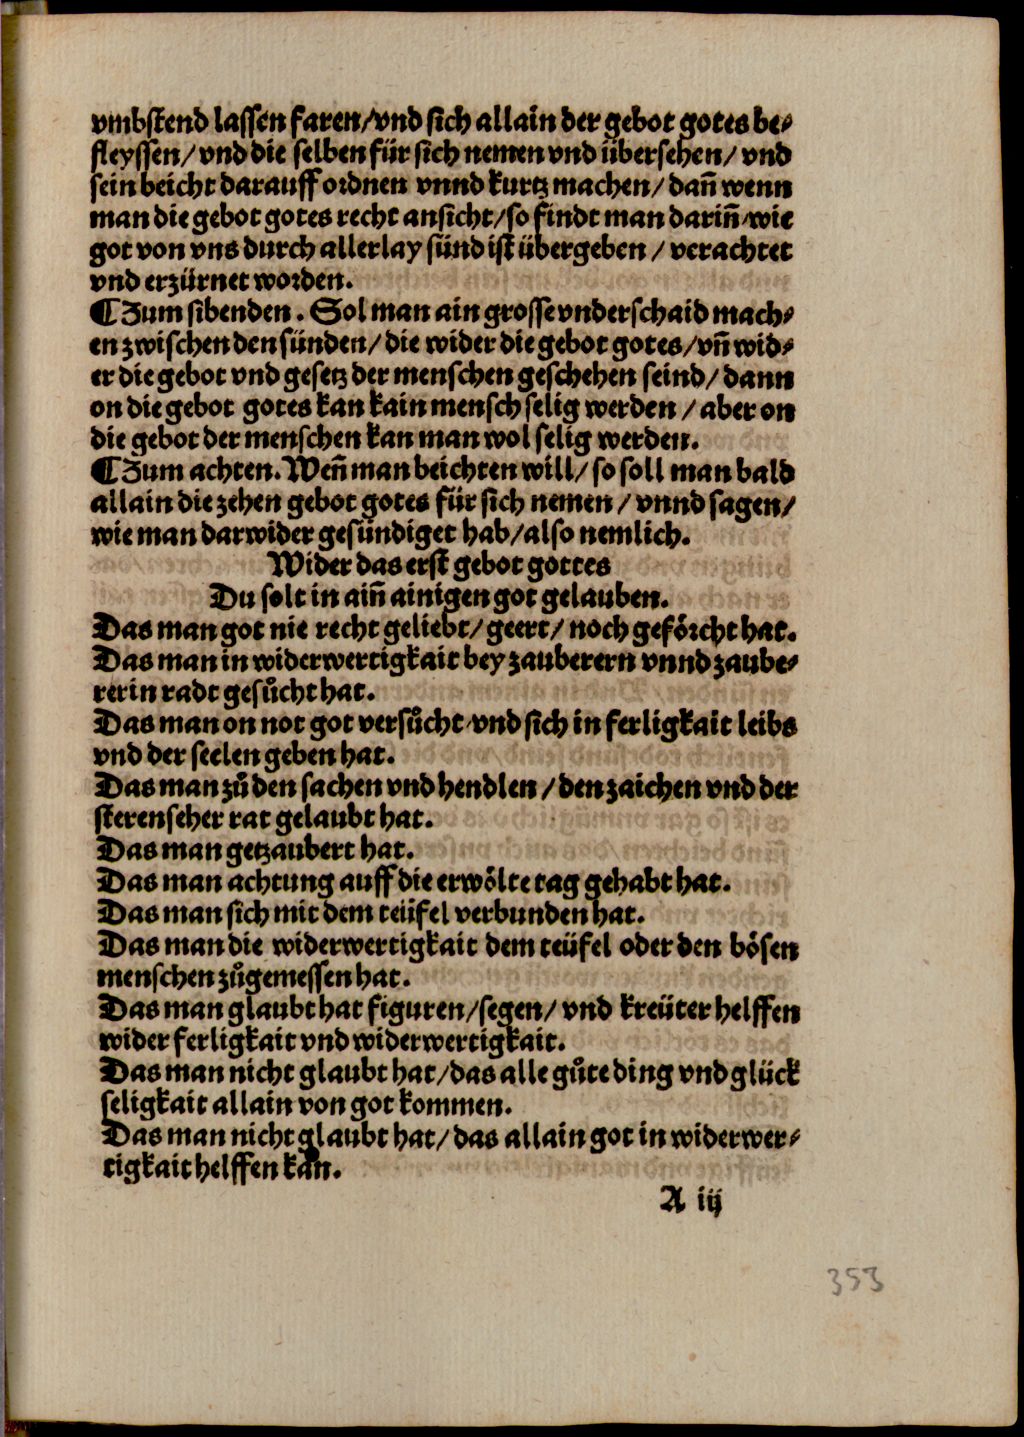 vmbstend lassen faren/vnd sich allain der gebot gotes be⸗
fleyssen/ vnd die selben für sich nemen vnd übersehen/ vnd
sein beicht darauff ordnen vnnd kurtz machen/ dañ wenn
man die gebot gotes recht ansicht/so findt man dariñ/wie
got von vns durch allerlay sünd ist übergeben / verachtet
vnd erzürnet worden.
¶Zum sibenden. Sol man ain grosse vnderschaid mach⸗
en zwischen den sünden/ die wider die gebot gotes/vñ wid⸗
er die gebot vnd gesetz der menschen geschehen seind/ dann
on die gebot gotes kan kain mensch selig werden / aber on
die gebot der menschen kan man wol selig werden.
¶Zum achten. Weñ man beichten will/ so soll man bald
allain die zehen gebot gotes für sich nemen / vnnd sagen/
wie man darwider gesündiget hab/also nemlich.
Wider das erst gebot gottes
Du solt in aiñ ainigen got gelauben.
Das man got nie recht geliebt/geert/ noch geförcht hat.
Das man in widerwertigkait bey zauberern vnnd zaube⸗
rerin radt gesůcht hat.
Das man on not got versůcht/vnd sich in ferligkait leibs
vnd der seelen geben hat.
Das man zů den sachen vnd hendlen / den zaichen vnd der
sterenseher rat gelaubt hat.
Das man getzaubert hat.
Das man achtung auff die erwölte tag gehabt hat.
Das man sich mit dem teüfel verbunden hat.
Das man die widerwertigkait dem teüfel oder den bösen
menschen zůgemessen hat.
Das man glaubt hat figuren/segen/ vnd kreüter helffen
wider ferligkait vnd widerwertigkait.
Das man nicht glaubt hat/das alle gůte ding vnd glück
seligkait allain von got kommen.
Das man nicht glaubt hat/ das allain got in widerwer⸗
tigkait helffen kan.
A iij
353